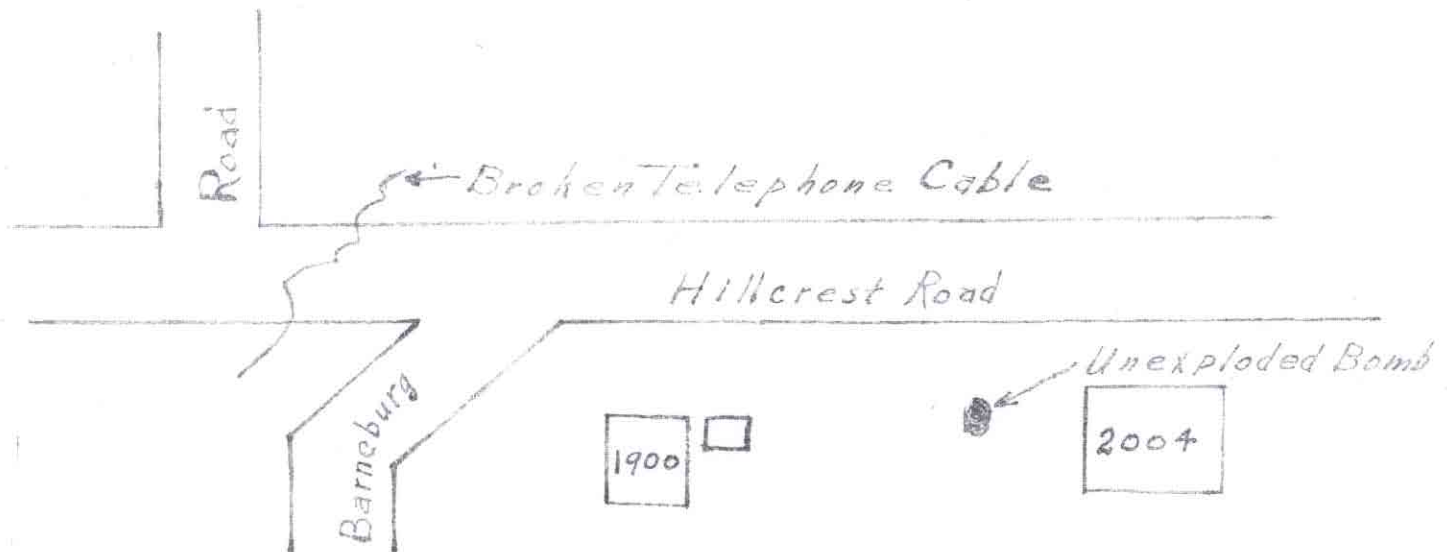 Road
Broken Telephone Cable
Hillcrest Road
Unexploded Bomb
Barneburg
1900
2004